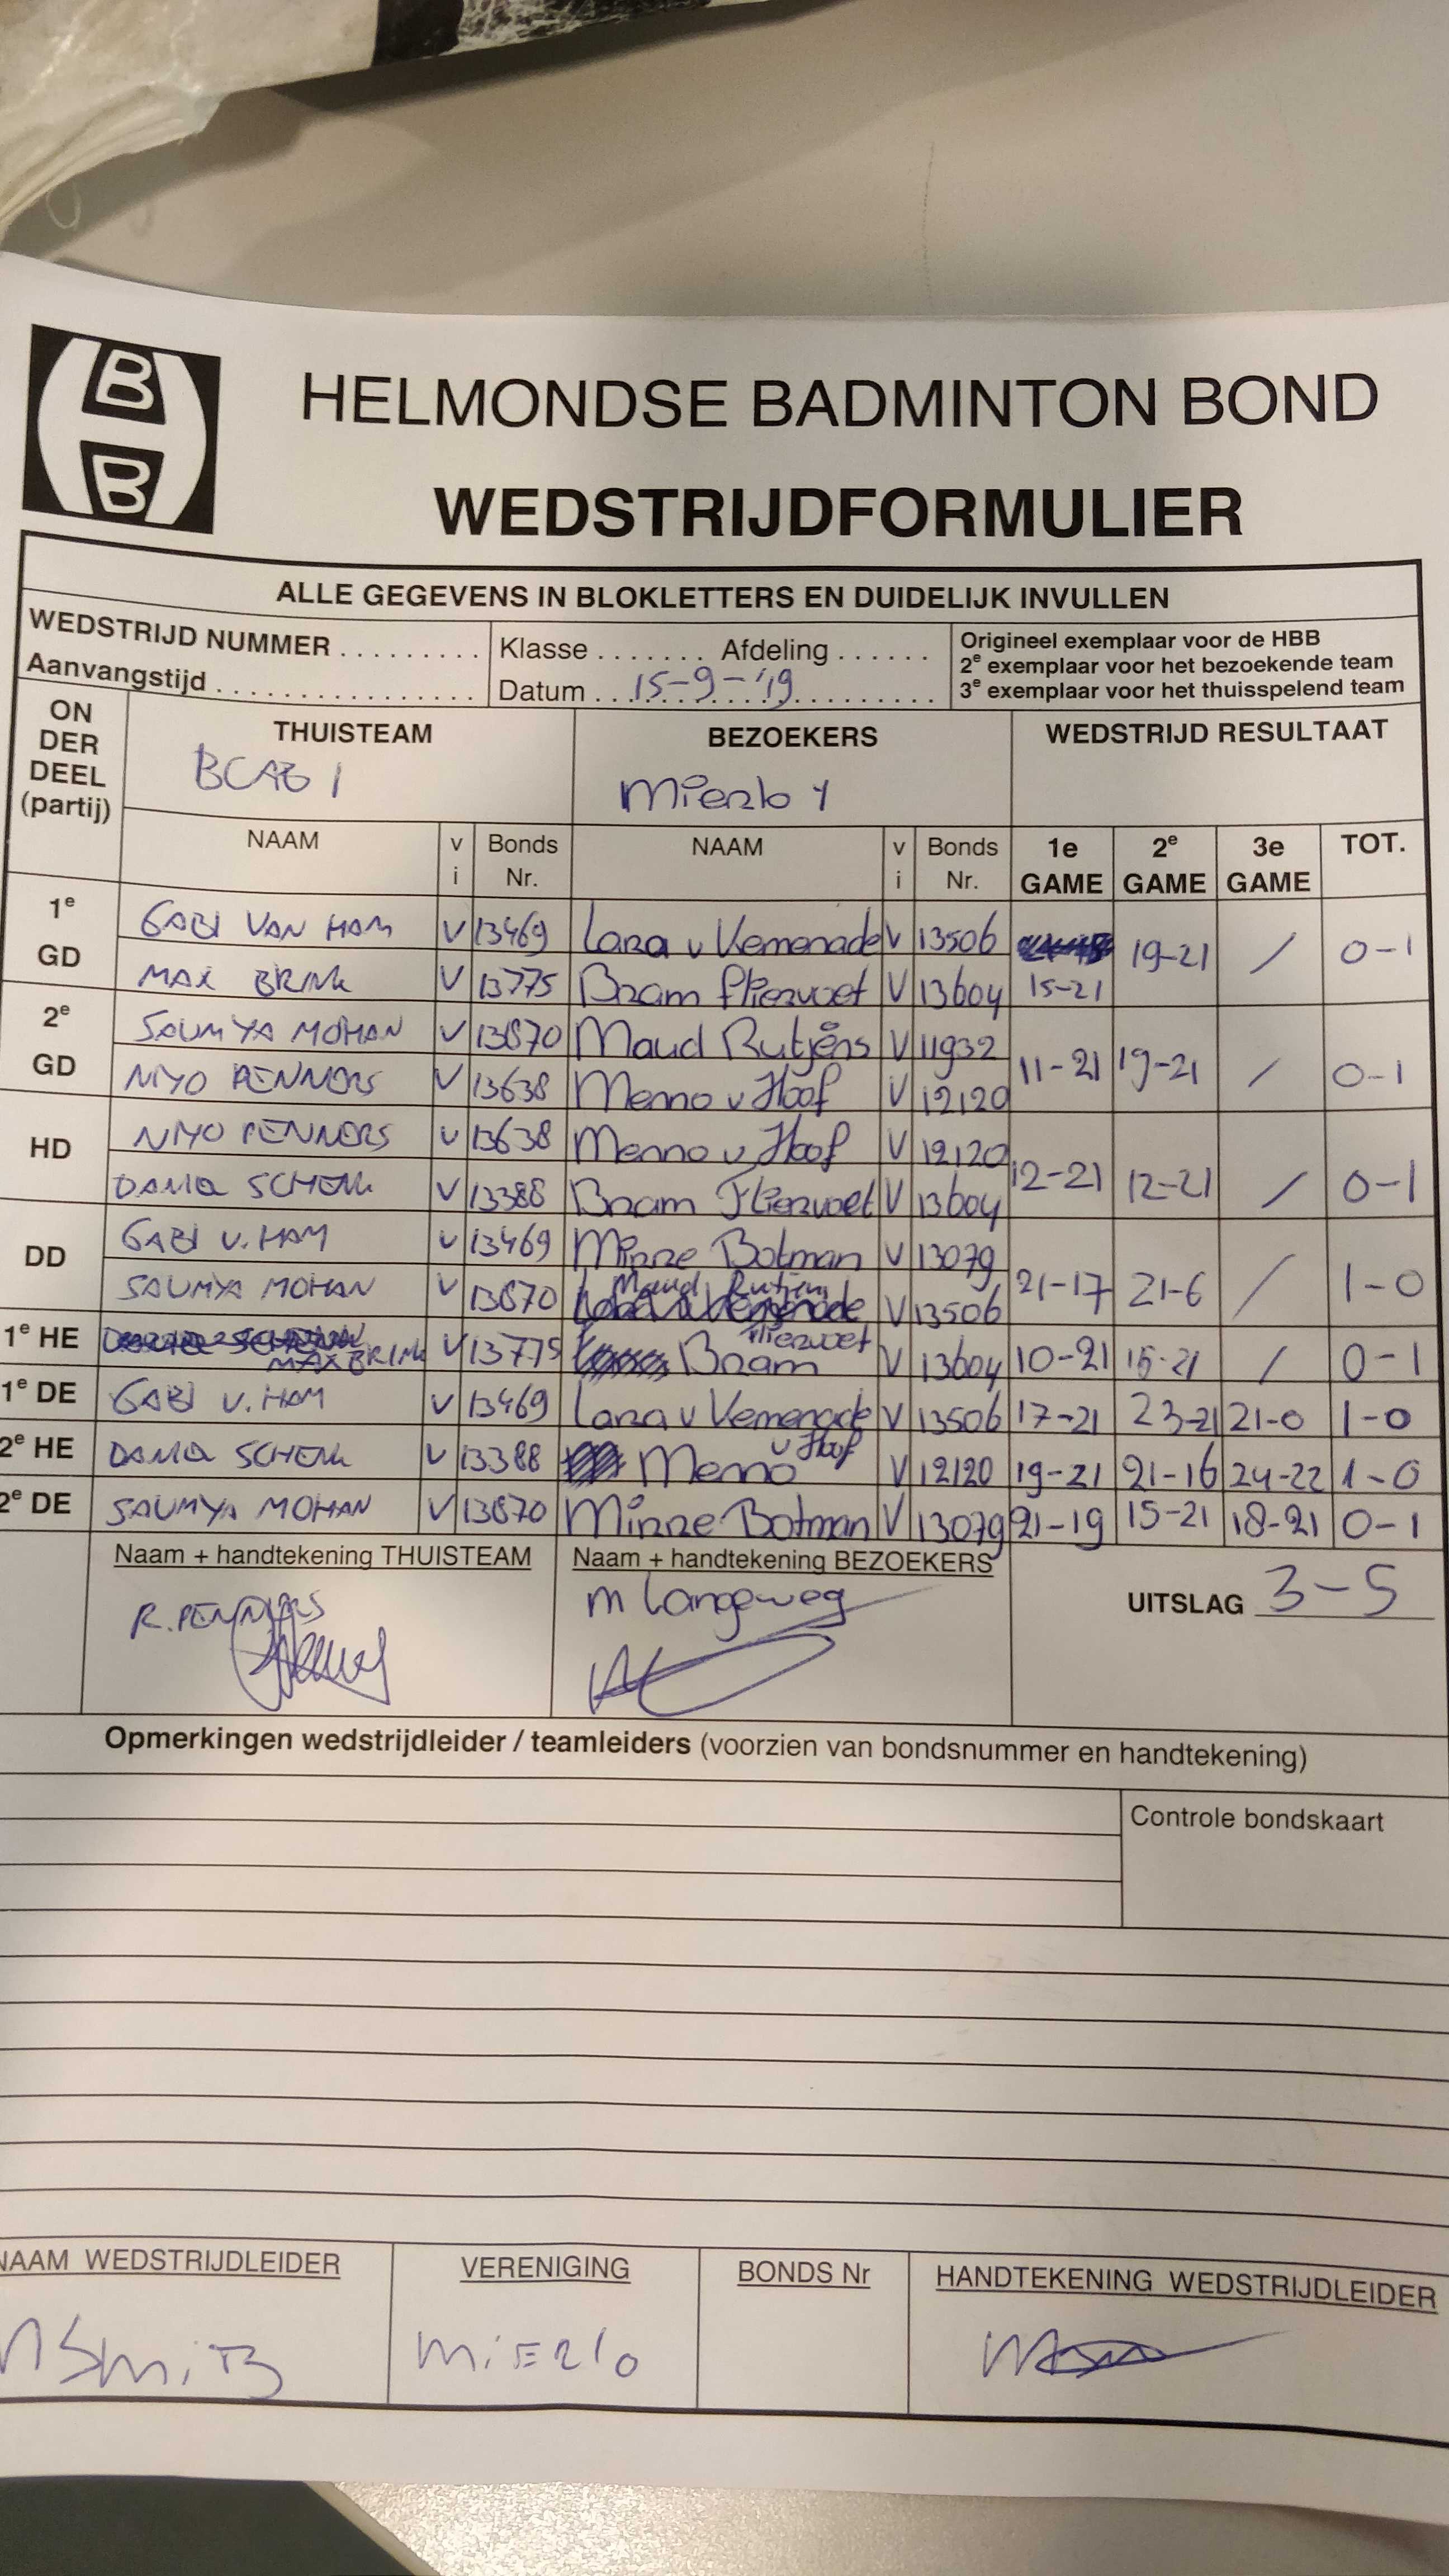 HBB
HELMONDSE BADMINTON BOND
WEDSTRIJDFORMULIER
ALLE GEGEVENS IN BLOKLETTERS EN DUIDELIJK INVULLEN
WEDSTRIJD NUMMER ......... Klasse ....... Afdeling ...... Origineel exemplaar voor de HBB
2e exemplaar voor het bezoekende team
Aanvangstijd ................. Datum 15-9-'19 3e exemplaar voor het thuisspelend team
ON DER DEEL (partij) THUISTEAM BEZOEKERS WEDSTRIJD RESULTAAT
BCAB 1 Mierlo 1
NAAM vi Bonds Nr. NAAM vi Bonds Nr. 1e GAME 2e GAME 3e GAME TOT.
1e GD GABI VAN HAM V 13469 Lara v Kemenade V 13506 19-21 / 0-1
MAX BRINK V 13775 Bram Fliervoet V 13604 15-21
2e GD SAUMYA MOHAN V 13870 Maud Rutjens V 11932 11-21 19-21 / 0-1
NIYO PENNERS V 13638 Menno v Hoof V 12120
HD NIYO PENNERS V 13638 Menno v Hoof V 12120 12-21 12-21 / 0-1
SCHENK V 13388 Bram Fliervoet V 13604
DD GABI V. HAM V 13469 Minne Botman V 13079 21-17 21-6 / 1-0
SAUMYA MOHAN V 13870 Maud Rutjens V 13506
1e HE MAX BRINK V 13775 Bram Fliervoet V 13604 10-21 15-21 / 0-1
1e DE GABI V. HAM V 13469 Lara v Kemenade V 13506 17-21 23-21 21-0 1-0
2e HE SCHENK V 13388 Menno v Hoof V 12120 19-21 21-16 24-22 1-0
2e DE SAUMYA MOHAN V 13870 Minne Botman V 13079 21-19 15-21 18-21 0-1
Naam + handtekening THUISTEAM Naam + handtekening BEZOEKERS
R. PENNERS M Langeweg UITSLAG 3-5
Opmerkingen wedstrijdleider / teamleiders (voorzien van bondsnummer en handtekening)
Controle bondskaart
NAAM WEDSTRIJDLEIDER VERENIGING BONDS Nr HANDTEKENING WEDSTRIJDLEIDER
MIERLO